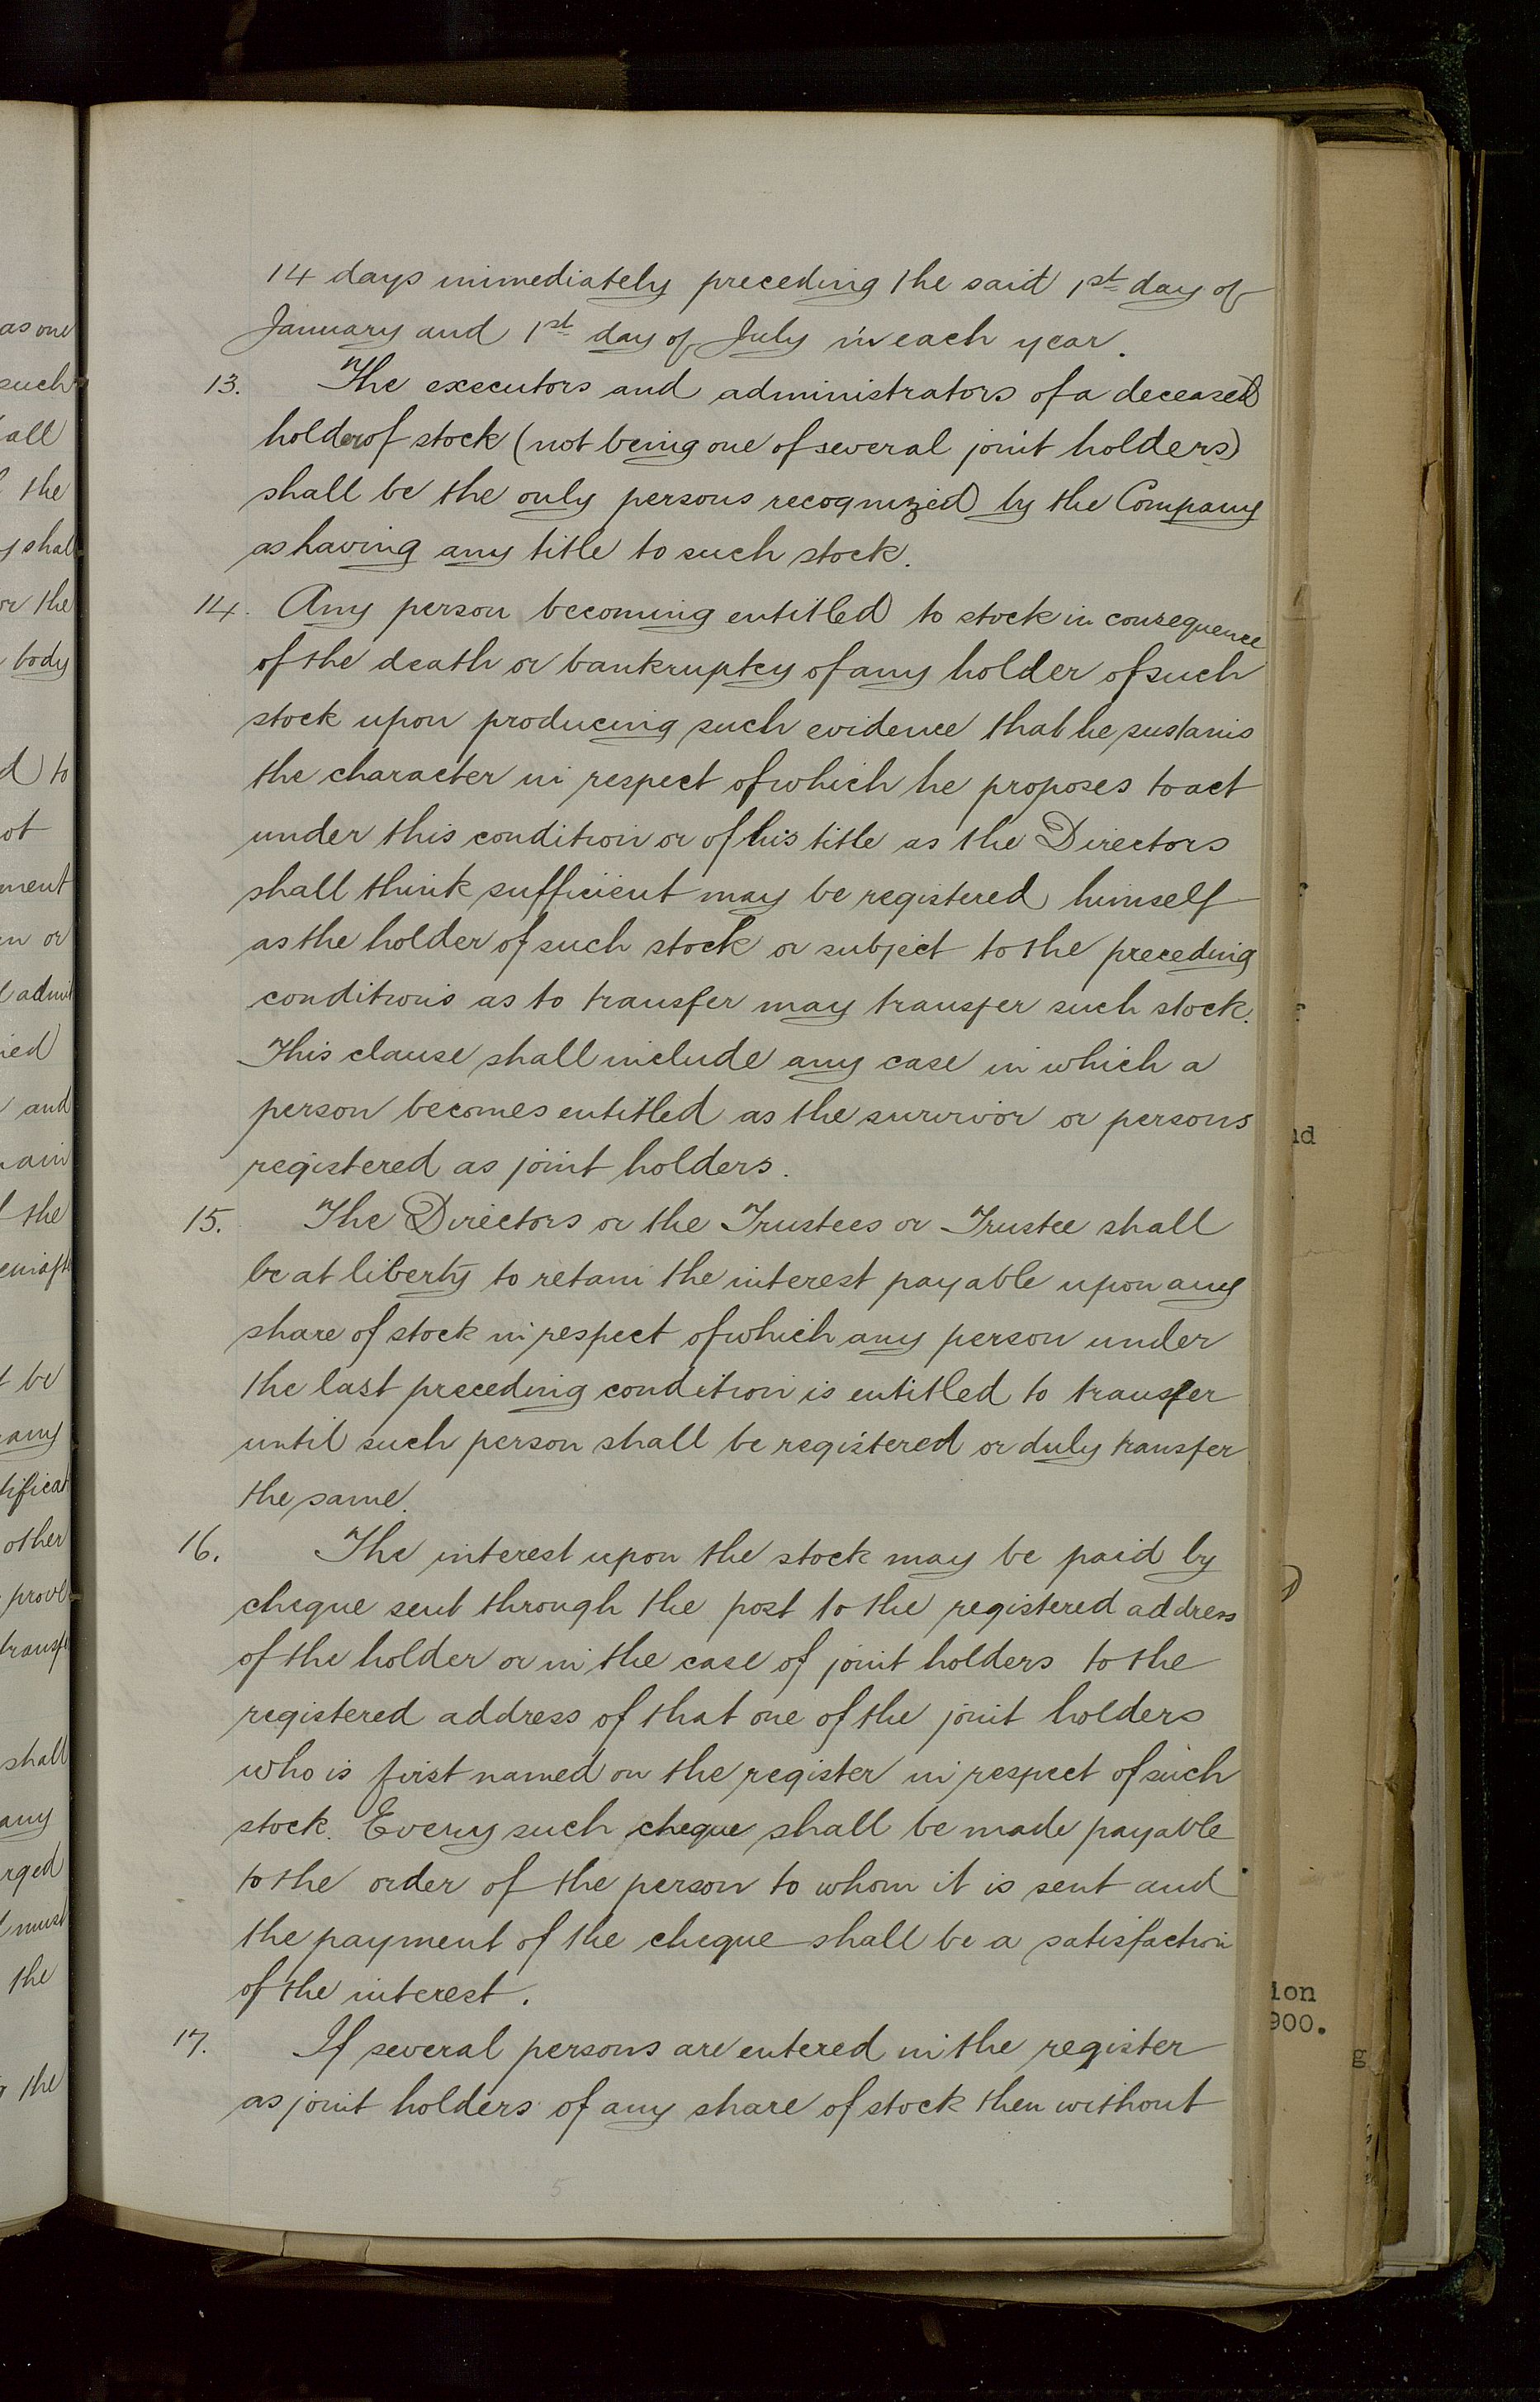 14 days immediately preceding the said 1st day of
January and 1st day of July in each year.
13. The executors and administrators of a deceased
holder of stock (not being one of several joint holders)
shall be the only persons recognized by the Company
as having any title to such stock.
14. Any person becoming entitled to stock in consequence
of the death or bankruptcy of any holder of such
stock upon producing such evidence that he sustains
the character in respect of which he proposes to act
under this condition or of his title as the Directors
shall think sufficient may be registered himself
as the holder of such stock or subject to the preceding
conditions as to transfer may transfer such stock.
This clause shall include any case in which a
person becomes entitled as the survivor or persons
registered as joint holders.
15. The Directors or the Trustees or Trustee shall
be at liberty to retain the interest payable upon any
share of stock in respect of which any person under
the last preceding condition is entitled to transfer
until such person shall be registered or duly transfer
the same.
16. The interest upon the stock may be paid by
cheque sent through the post to the registered address
of the holder or in the case of joint holders to the
registered address of that one of the joint holders
who is first named on the register in respect of such
stock. Every such cheque shall be made payable
to the order of the person to whom it is sent and
the payment of the cheque shall be a satisfaction
of the interest.
17. If several persons are entered in the register
as joint holders of any share of stock then without
5